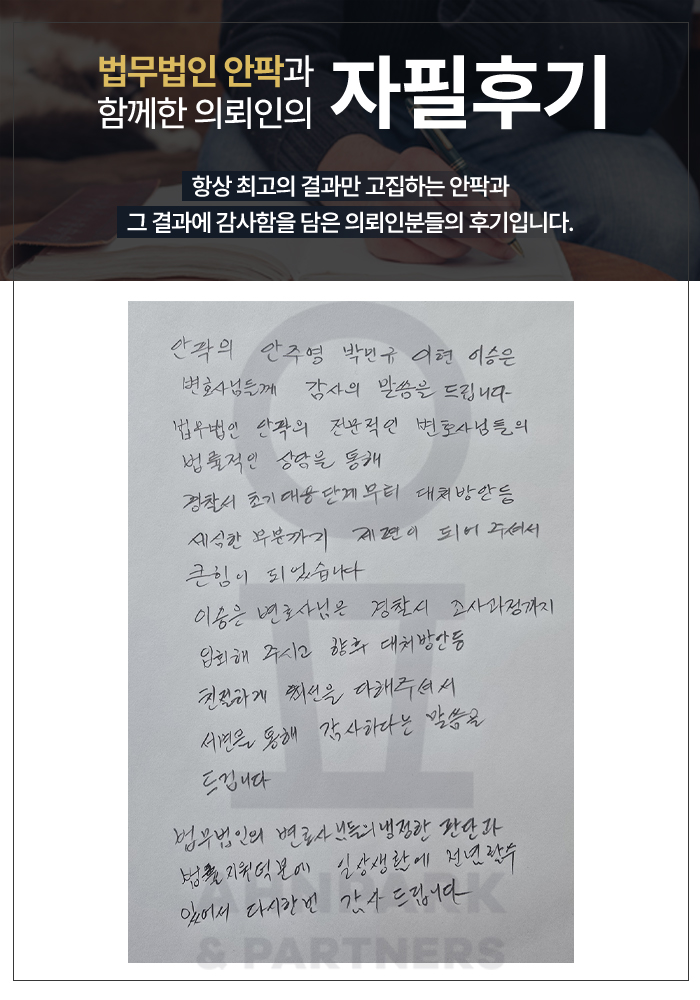 법무법인 안팍과
함께한 의뢰인의
자필후기
항상 최고의 결과만 고집하는 안팍과
그 결과에 감사함을 담은 의뢰인분들의 후기입니다.
안팍의 안주영 박민규 이현 이승은
변호사님들께 감사의 말씀을 드립니다
법무법인 안팍의 전문적인 변호사님들의
법률적인 상담을 통해
경찰서 초기대응 단계부터 대처방안등
세심한 부분까지 되어 주셔서
큰힘이 되었습니다
이승은 변호사님은 경찰서 조사과정까지
입회해 주시고 향후 대처방안등
친절하게 최선을 다해주셔서
서면을 통해 감사하다는 말씀을
드립니다
법무법인의 변호사님들의 냉정한 판단과
법률지원덕분에 일상생활에 전념할수
있어서 다시한번 감사 드립니다
AHNPARK
& PARTNERS